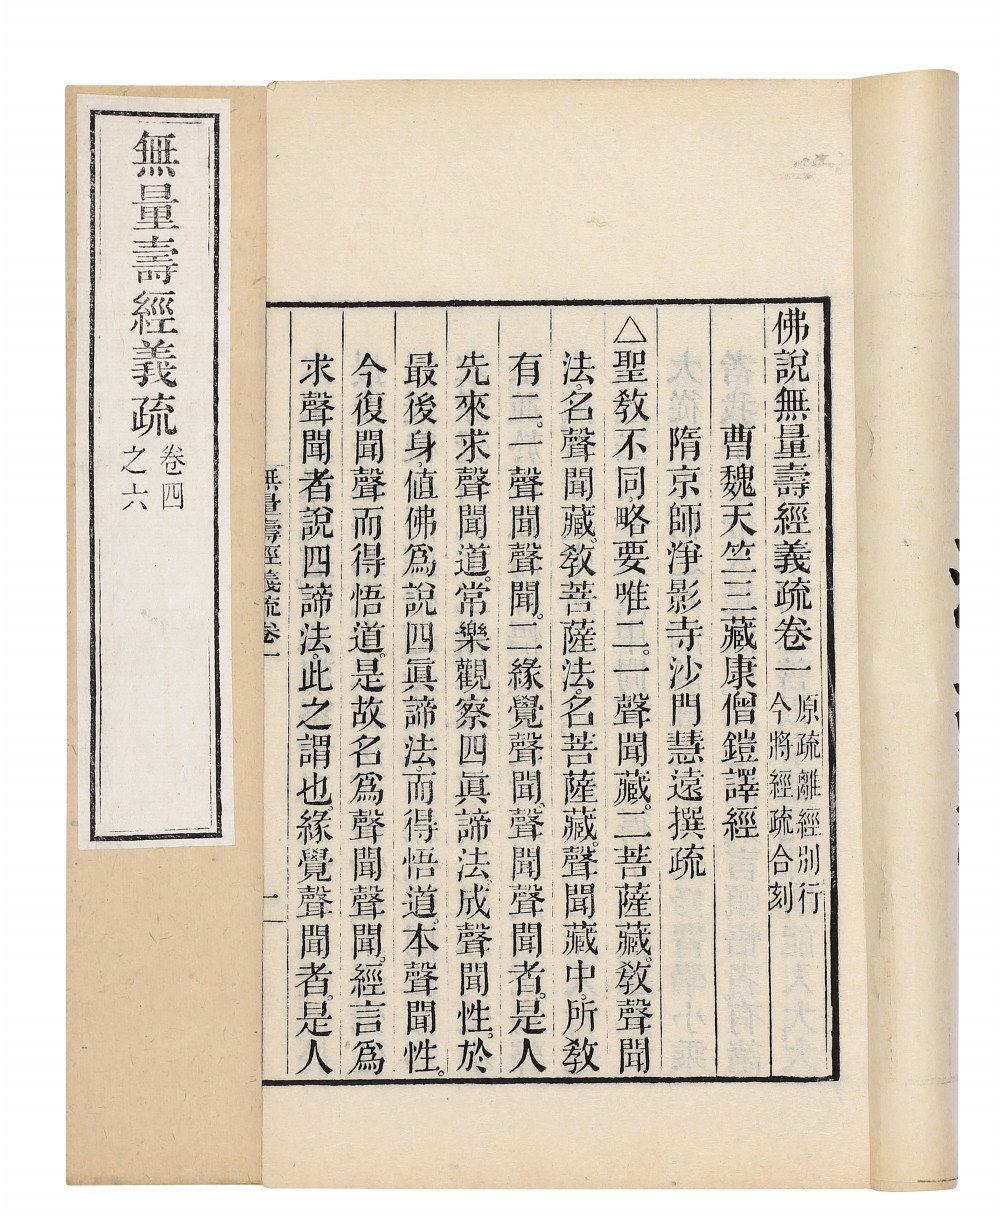 無量壽經義疏
卷四
之六
佛說無量壽經義疏卷一
原疏離經別行
今將經疏合刻
曹魏天竺三藏康僧鎧譯經
隋京師淨影寺沙門慧遠撰疏
△聖教不同。略要唯二。一聲聞藏。二菩薩藏。教聲聞
法。名聲聞藏。教菩薩法。名菩薩藏。聲聞藏中。所教
有二。一聲聞聲聞。二緣覺聲聞。聲聞聲聞者。是人
先來求聲聞道。常樂觀察四眞諦法。成聲聞性。於
最後身。值佛爲說四眞諦法。而得悟道。本聲聞性。
今復聞聲而得悟道。是故名爲聲聞聲聞。經言爲
求聲聞者說四諦法。此之謂也。緣覺聲聞者。是人
無量壽經義疏卷一